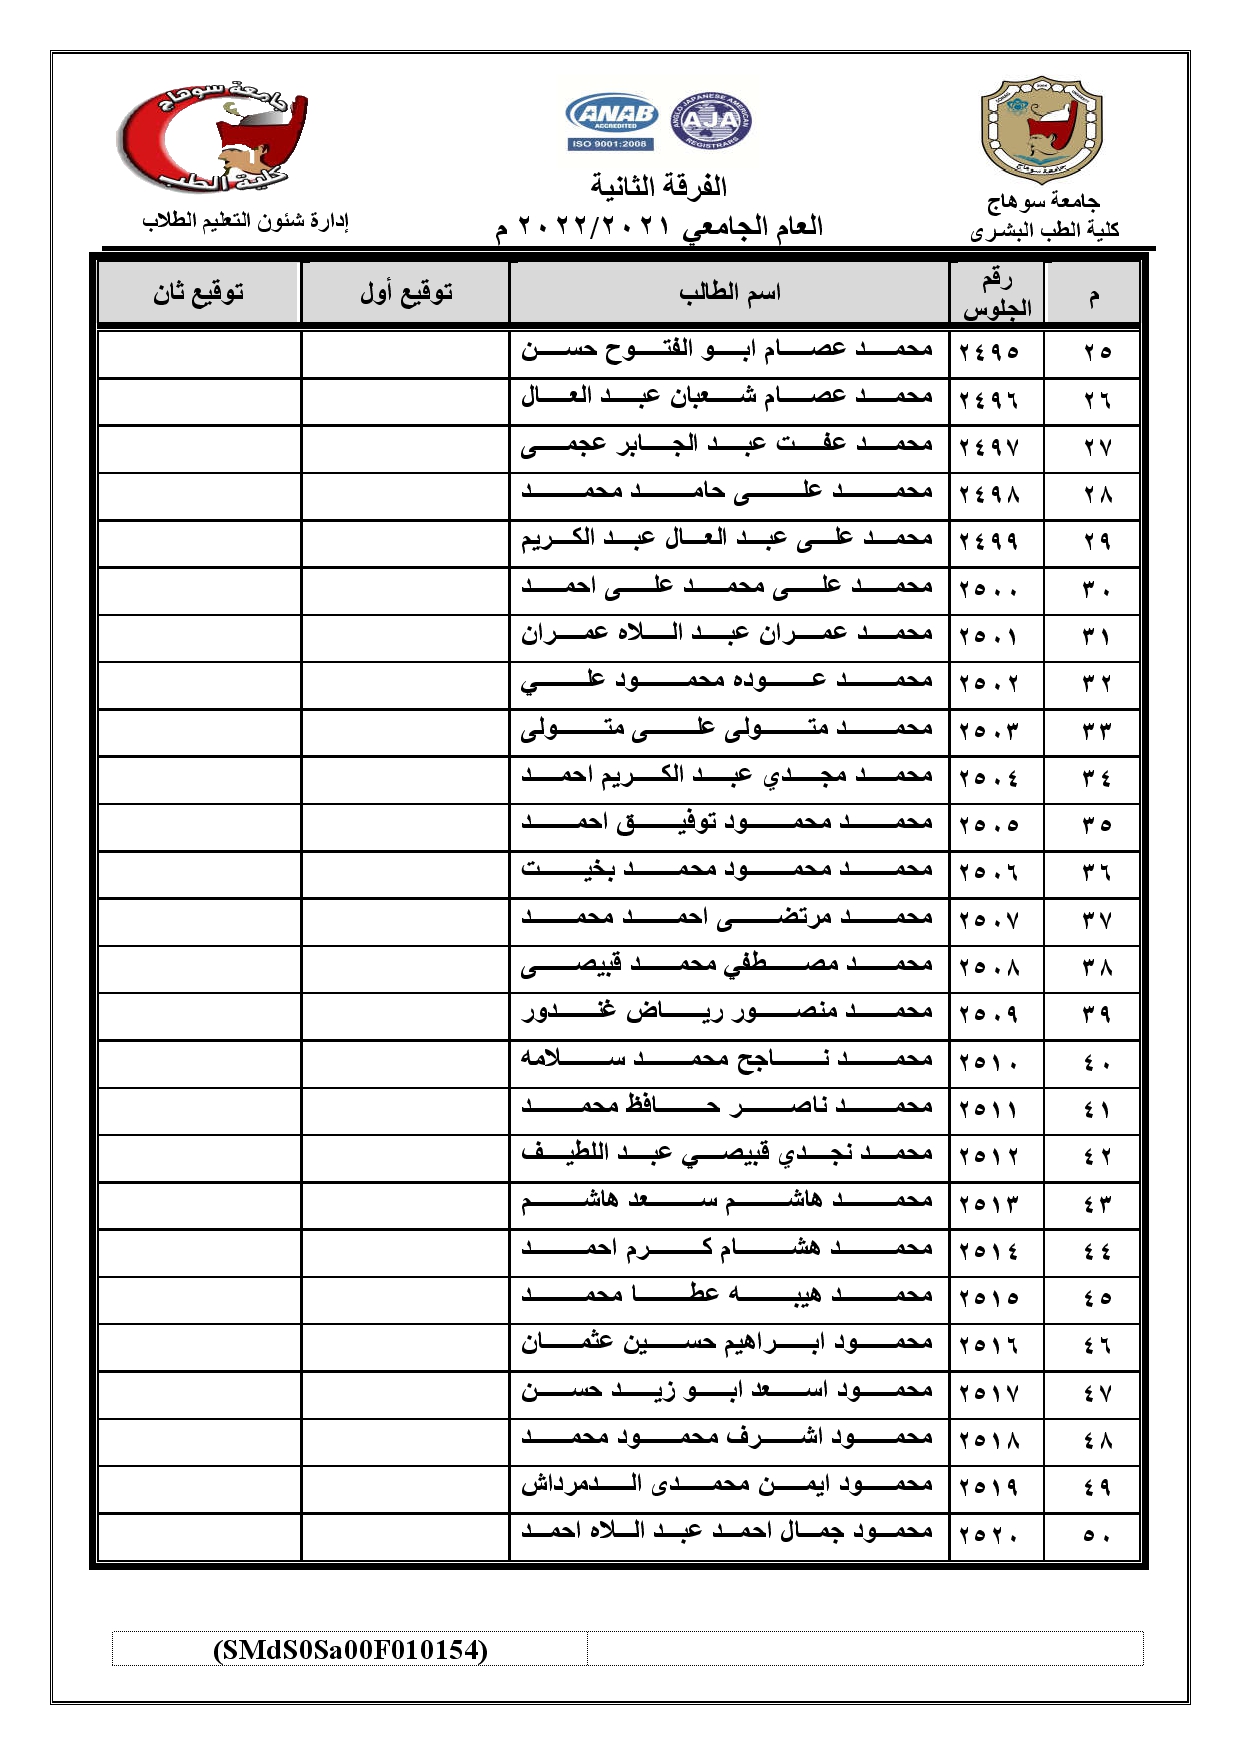 جامعة سوهاج
كلية الطب
ANAB
ACCREDITED
ISO 9001:2008
ANGLO JAPANESE AMERICAN
AJA
REGISTRARS
جامعة سوهاج
جامعة سوهاج
كلية الطب البشرى
الفرقة الثانية
العام الجامعي ٢٠٢٢/٢٠٢١ م
إدارة شئون التعليم الطلاب
م رقم الجلوس اسم الطالب توقيع أول توقيع ثان
٢٥ ٢٤٩٥ محمد عصام ابو الفتوح حسن
٢٦ ٢٤٩٦ محمد عصام شعبان عبد العال
٢٧ ٢٤٩٧ محمد عفت عبد الجابر عجمى
٢٨ ٢٤٩٨ محمد على حامد محمد
٢٩ ٢٤٩٩ محمد على عبد العال عبد الكريم
٣٠ ٢٥٠٠ محمد على محمد على احمد
٣١ ٢٥٠١ محمد عمران عبد اللاه عمران
٣٢ ٢٥٠٢ محمد عوده محمود علي
٣٣ ٢٥٠٣ محمد متولى على متولى
٣٤ ٢٥٠٤ محمد مجدي عبد الكريم احمد
٣٥ ٢٥٠٥ محمد محمود توفيق احمد
٣٦ ٢٥٠٦ محمد محمود محمد بخيت
٣٧ ٢٥٠٧ محمد مرتضى احمد محمد
٣٨ ٢٥٠٨ محمد مصطفي محمد قبيصى
٣٩ ٢٥٠٩ محمد منصور رياض غندور
٤٠ ٢٥١٠ محمد ناجح محمد سلامه
٤١ ٢٥١١ محمد ناصر حافظ محمد
٤٢ ٢٥١٢ محمد نجدي قبيصي عبد اللطيف
٤٣ ٢٥١٣ محمد هاشم سعد هاشم
٤٤ ٢٥١٤ محمد هشام كرم احمد
٤٥ ٢٥١٥ محمد هيبه عطا محمد
٤٦ ٢٥١٦ محمود ابراهيم حسين عثمان
٤٧ ٢٥١٧ محمود اسعد ابو زيد حسن
٤٨ ٢٥١٨ محمود اشرف محمود محمد
٤٩ ٢٥١٩ محمود ايمن محمدى الدمرداش
٥٠ ٢٥٢٠ محمود جمال احمد عبد اللاه احمد
(SMdS0Sa00F010154)